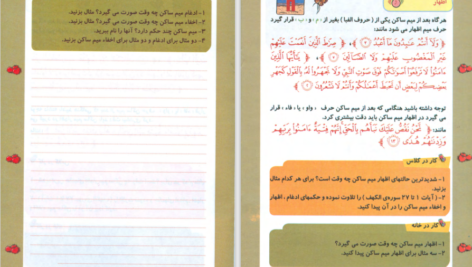 اظهار
هرگاه بعد از میم ساکن یکی از ( حروف الفبا ) بغیر از ، م ، و ، ب ، قرار گیرد
حرف میم اظهار می شود مانند:
﴿ وَلَا أَنتُمْ عَابِدُونَ مَا أَعْبُدُ ﴾ ، ﴿ صِرَاطَ الَّذِينَ أَنْعَمْتَ عَلَيْهِمْ
غَيْرِ الْمَغْضُوبِ عَلَيْهِمْ وَلَا الضَّالِّينَ ﴾ ، ﴿ يَا أَيُّهَا الَّذِينَ
آمَنُوا لَا تَرْفَعُوا أَصْوَاتَكُمْ فَوْقَ صَوْتِ النَّبِيِّ وَلَا تَجْهَرُوا لَهُ بِالْقَوْلِ كَجَهْرِ
بَعْضِكُمْ لِبَعْضٍ أَن تَحْبَطَ أَعْمَالُكُمْ وَأَنتُمْ لَا تَشْعُرُونَ ﴾
توجه داشته باشید هنگامی که بعد از میم ساکن حرف ، واو ، یا ، فاء ، قرار
می گیرد در اظهار میم ساکن باید دقت بیشتری کرد.
مانند: ﴿ نَحْنُ نَقُصُّ عَلَيْكَ نَبَأَهُم بِالْحَقِّ إِنَّهُمْ فِتْيَةٌ آمَنُوا بِرَبِّهِمْ
وَزِدْنَاهُمْ هُدًى ﴾
کار در کلاس
۱- شدیدترین حالتهای اظهار میم ساکن چه وقت است؟ برای هر کدام مثال
بزنید.
۲- ( آیات ۱ تا ۲۷ سوره‌ی الکهف ) را تلاوت نموده و حکمهای ادغام ، اظهار
و اخفاء میم ساکن را در آن پیدا کنید.
کار در خانه
۱- اظهار میم ساکن چه وقت صورت می گیرد؟
۲- سه مثال برای اظهار میم ساکن پیدا کنید.
۱- ادغام میم ساکن چه وقت صورت می گیرد؟ مثال بزنید.
۲- اخفاء میم ساکن چه وقت صورت می گیرد؟ مثال بزنید.
۳- میم ساکن چند حکم دارد؟ آنها را نام ببرید
۴- دو مثال برای ادغام و دو مثال برای اخفاء میم ساکن پیدا کنید.